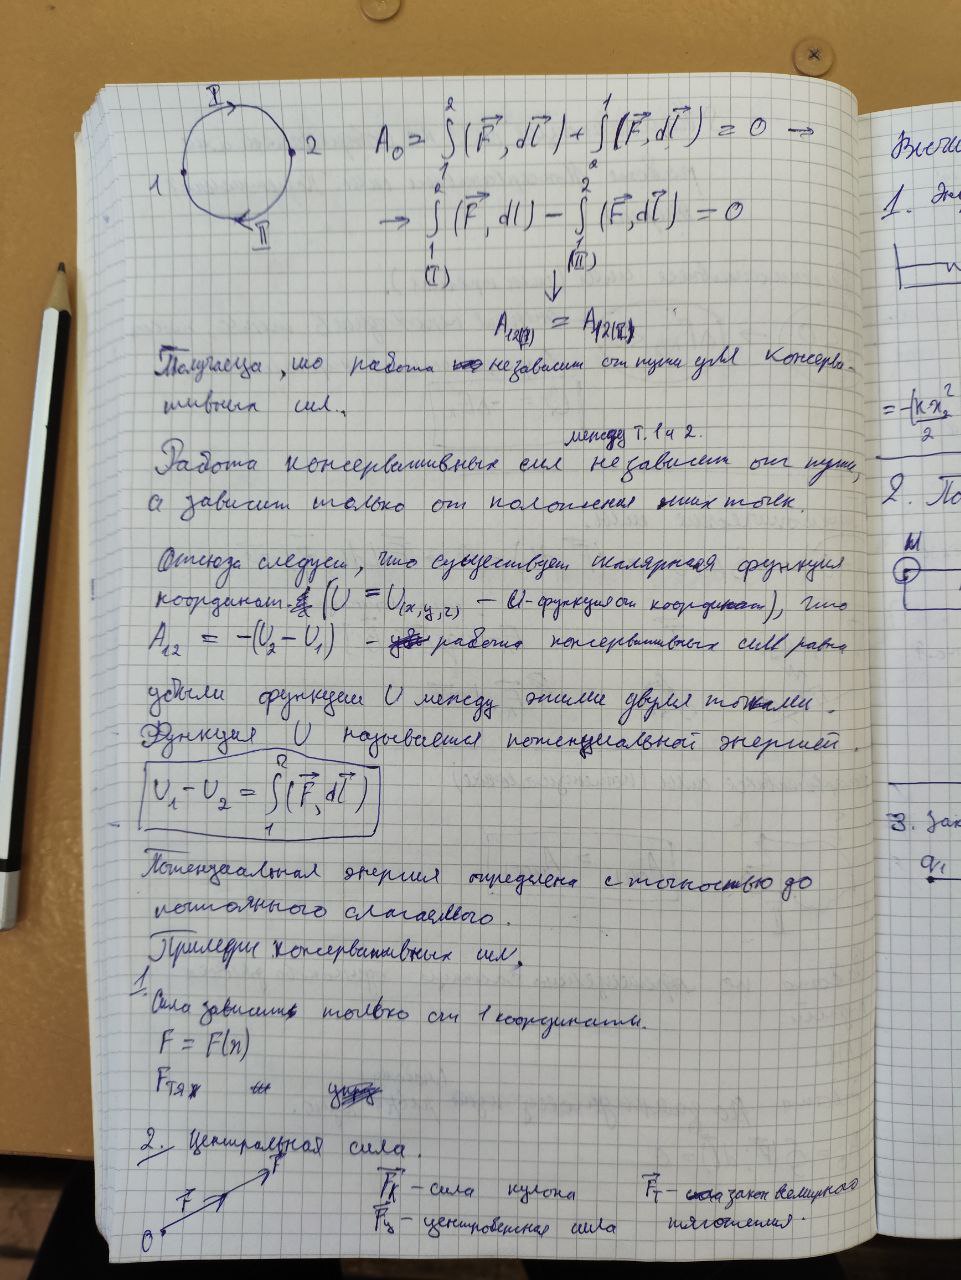 I
1
2
II
A₀ = ∫₁² (F⃗, dl⃗) + ∫₂¹ (F⃗, dl⃗) = 0 →
→ ∫₁² (F⃗, dl) − ∫₁² (F⃗, dl⃗) = 0
(I) (II)
↓
A₁₂(I) = A₁₂(II)
Получаеца, что работа независит от пути для консерва-
тивных сил.
между т. 1 и 2.
Работа консервативных сил независит от пути,
а зависит только от положения этих точек.
Отсюда следует, что существует скалярная функция
координат (U = U(x,y,z) — U-функция от координат), что
A₁₂ = −(U₂ − U₁) - работа консервативных сил равна
убыли функции U между этими двумя точками.
Функция U называется потенциальной энергией.
U₁ − U₂ = ∫₁² (F⃗, dl⃗)
Потенциальная энергия определена с точностью до
постоянного слагаемого.
Примеры консервативных сил.
1.
Сила зависит только от 1 координаты.
F = F(x)
Fтяж
2. Центральная сила.
r⃗ F⃗
O
F⃗к — сила кулона F⃗т — закон всемирного
F⃗ц — центробежная сила тяготения.
1.
= -(k·x₂²
2
2. По
M
3. Зак
q₁